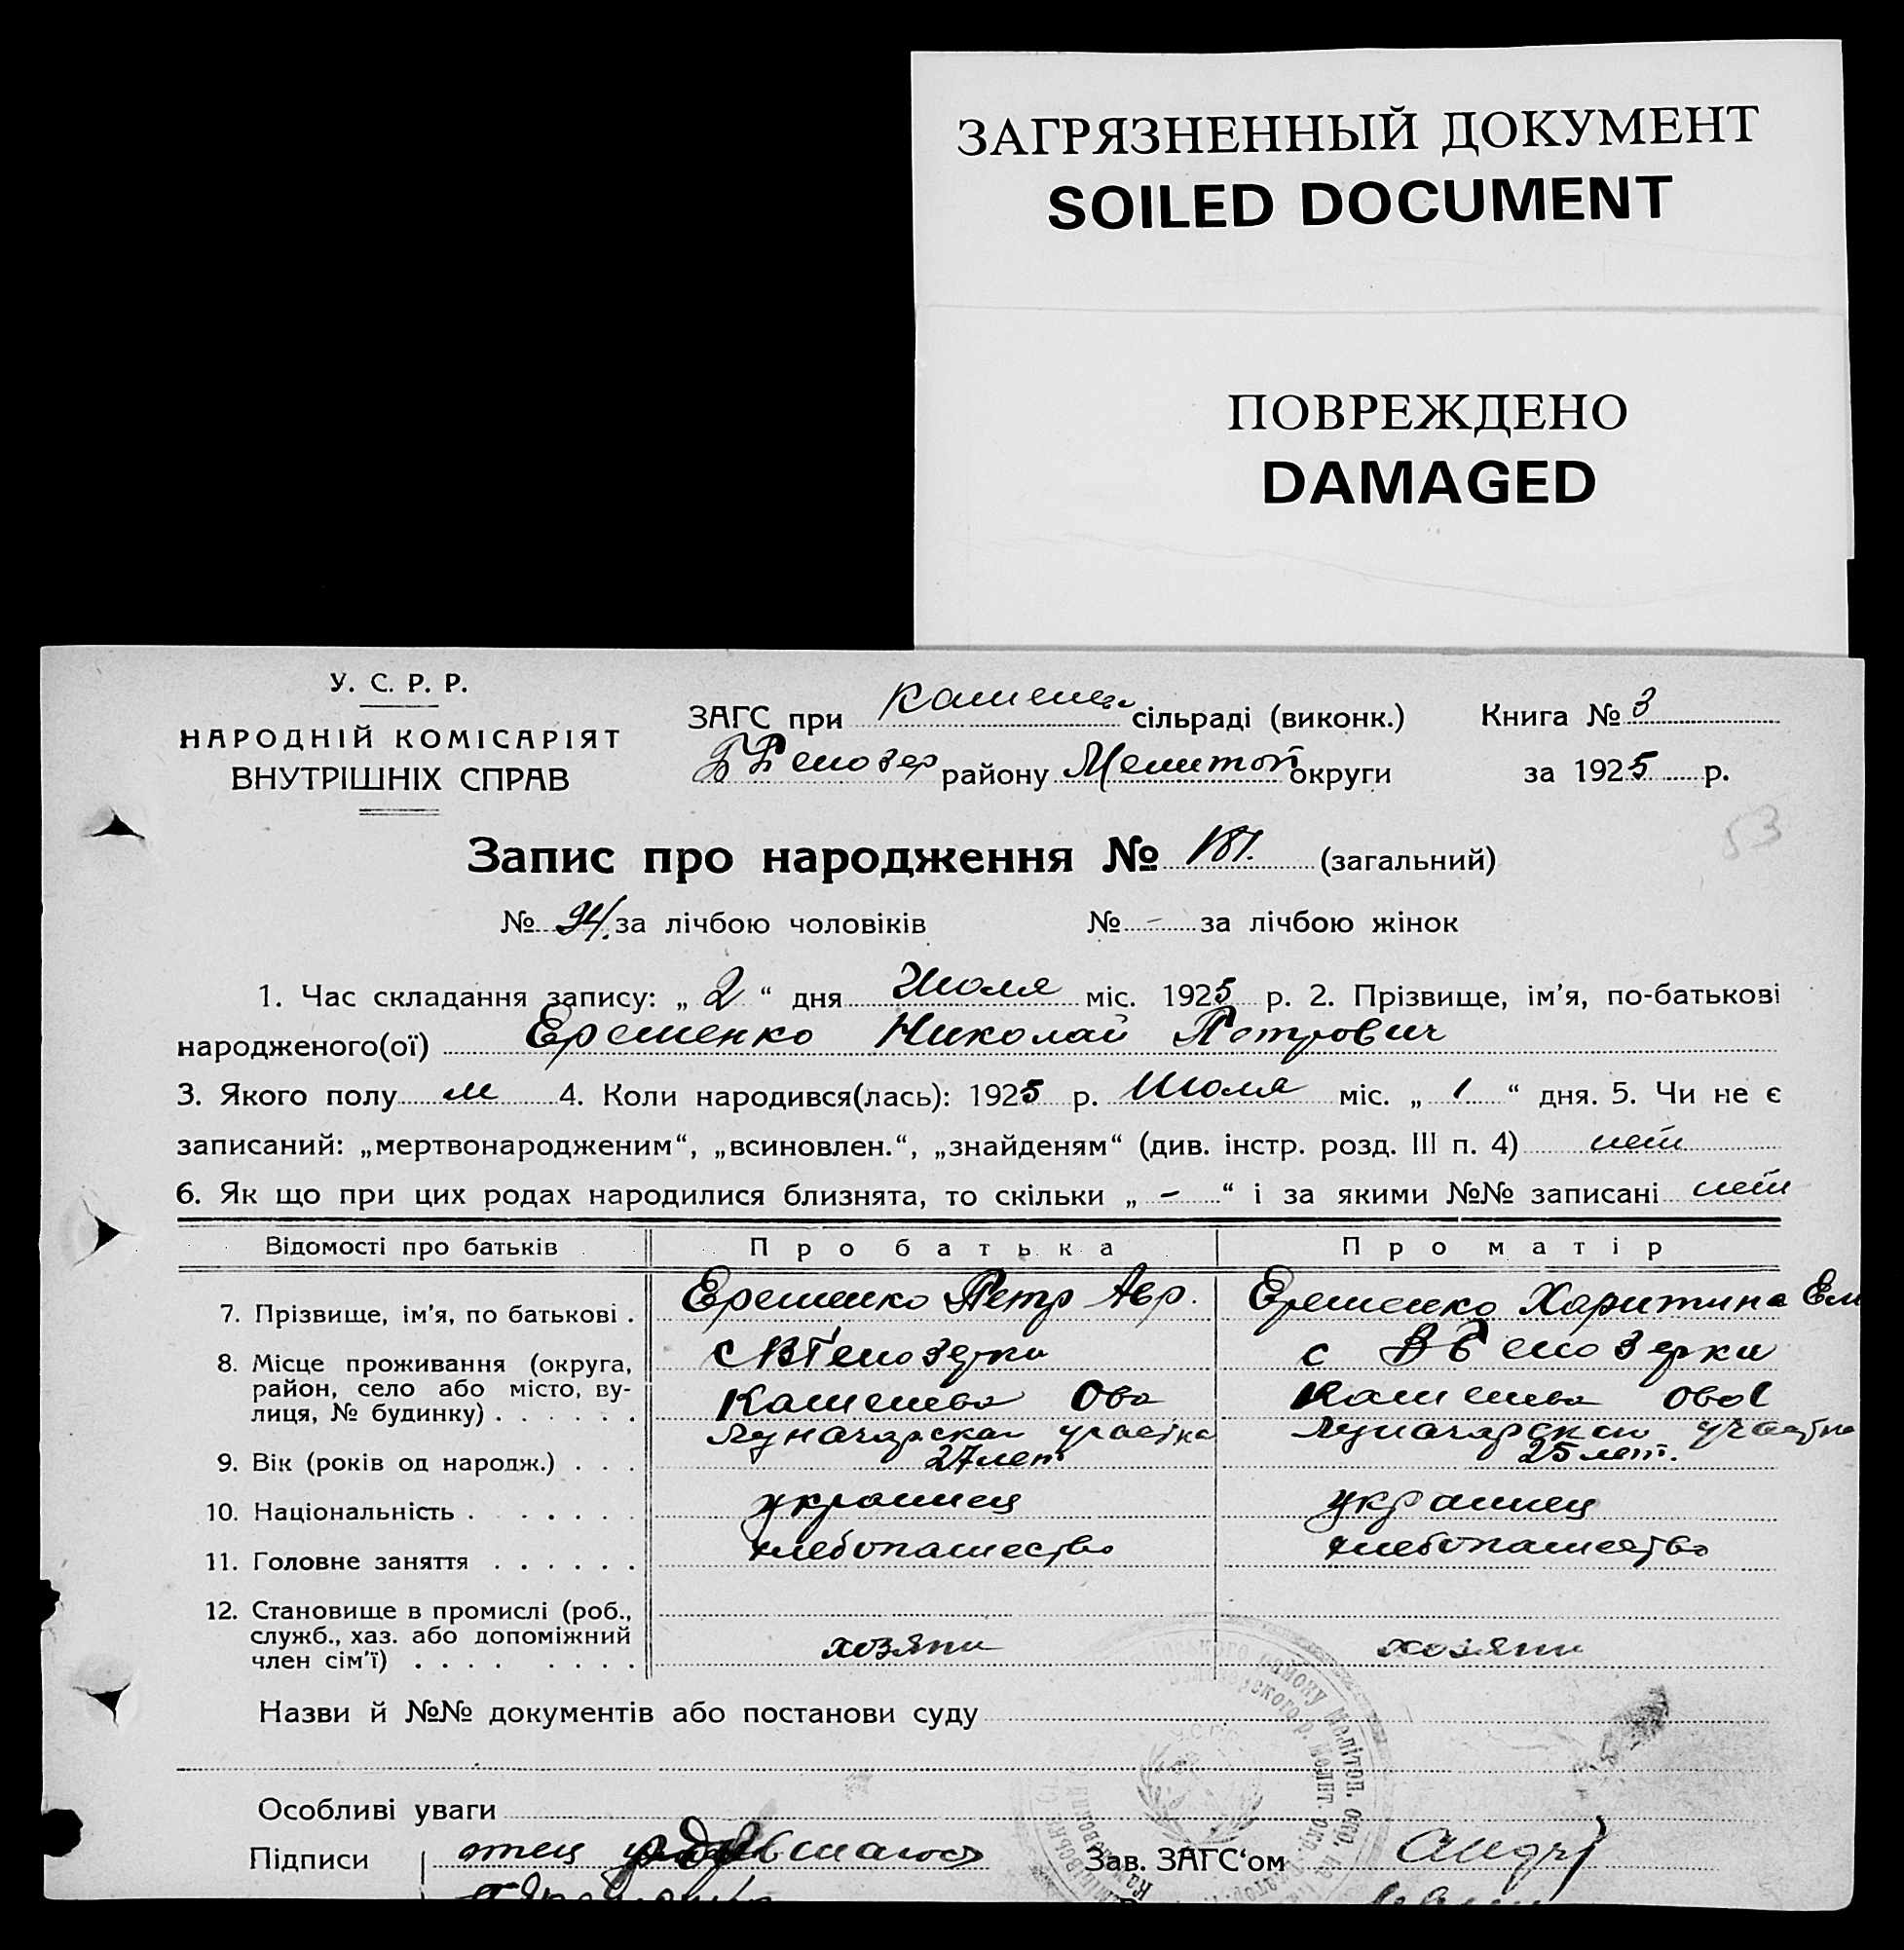 ЗАГРЯЗНЕННЫЙ ДОКУМЕНТ
SOILED DOCUMENT
ПОВРЕЖДЕНО
DAMAGED
У. С. Р. Р.
НАРОДНІЙ КОМІСАРІЯТ
ВНУТРІШНІХ СПРАВ
ЗАГС при сільраді (виконк.) Книга № 3
району Мелитоп округи за 1925 р.
53
Запис про народження № 181. (загальний)
№ 94. за лічбою чоловіків № - за лічбою жінок
1. Час складання запису: „ 2 “ дня Июля міс. 1925 р. 2. Прізвище, ім’я, по-батькові
народженого(ої) Ерешенко Николай Петрович
3. Якого полу м 4. Коли народився(лась): 1925 р. Июля міс. „ 1 “ дня. 5. Чи не є
записаний: „мертвонародженим“, „всиновлен.“, „знайденям“ (див. інстр. розд. III п. 4) нет
6. Як що при цих родах народилися близнята, то скільки „ - “ і за якими №№ записані нет
Відомості про батьків Про батька Про матір
7. Прізвище, ім’я, по батькові . Ерешенко Петр Авр. Ерешенко Харитина Ем
8. Місце проживання (округа,
район, село або місто, ву-
лиця, № будинку) . . . . . .
9. Вік (років од народж.) . . . 27 лет 25 лет.
10. Національність . . . . . . украинец украинец
11. Головне заняття . . . . . . хлебопашество хлебопашество
12. Становище в промислі (роб.,
служб., хаз. або допоміжний
член сім’ї) . . . . . . . . хозяин хозяин
Назви й №№ документів або постанови суду
Особливі уваги
Підписи отец Зав. ЗАГС‘ом